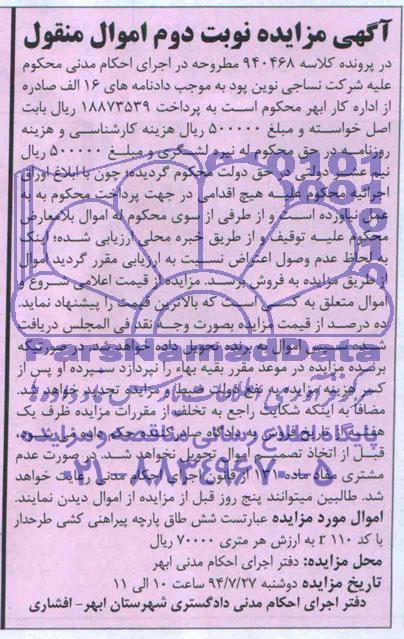 آگهی مزایده نوبت دوم اموال منقول
در پرونده کلاسه ۹۴۰۴۶۸ مطروحه در اجرای احکام مدنی محکوم
علیه شرکت نساجی نوین پود به موجب دادنامه های ۱۶ الف صادره
از اداره کار ابهر محکوم است به پرداخت ۱۸۸۷۳۵۳۹ ریال بابت
اصل خواسته و مبلغ ۵۰۰۰۰۰ ریال هزینه کارشناسی و هزینه
روزنامه در حق محکوم له نیره لشگری و مبلغ ۵۰۰۰۰۰ ریال
نیم عشر دولتی در حق دولت محکوم گردیده؛ چون با ابلاغ اوراق
اجرائیه محکوم علیه هیچ اقدامی در جهت پرداخت محکوم به به
عمل نیاورده است و از طرفی از سوی محکوم له اموال بلامعارض
محکوم علیه توقیف و از طریق خبره محلی ارزیابی شده؛ اینک
به لحاظ عدم وصول اعتراض نسبت به ارزیابی مقرر گردید اموال
از طریق مزایده به فروش برسد. مزایده از قیمت اعلامی شروع و
اموال متعلق به کسی است که بالاترین قیمت را پیشنهاد نماید.
ده درصد از قیمت مزایده بصورت وجه نقد فی المجلس دریافت
شده سپس اموال به برنده تحویل داده خواهد شد. در صورتیکه
برنده مزایده در موعد مقرر بقیه بهاء را نپردازد سپرده او پس از
کسر هزینه مزایده به نفع دولت ضبط و مزایده تجدید خواهد شد.
مضافا به اینکه شکایت راجع به تخلف از مقررات مزایده ظرف یک
هفته از تاریخ فروش به دادگاه صادرکننده حکم داده می شود
قبل از اتخاذ تصمیم اموال تحویل نخواهد شد. در صورت عدم
مشتری مفاد ماده ۱۳۱ از قانون اجرای احکام مدنی رعایت خواهد
شد. طالبین میتوانند پنج روز قبل از مزایده از اموال دیدن نمایند.
اموال مورد مزایده عبارتست شش طاق پارچه پیراهنی کشی طرحدار
با کد r 110 به ارزش هر متری ۷۰۰۰۰ ریال
محل مزایده: دفتر اجرای احکام مدنی ابهر
تاریخ مزایده دوشنبه ۹۴/۷/۲۷ ساعت ۱۰ الی ۱۱
دفتر اجرای احکام مدنی دادگستری شهرستان ابهر- افشاری
ParsNamadData
پایگاه اطلاع رسانی مناقصه و مزایده
۰۲۱-۸۸۳۴۹۶۷۰-۵